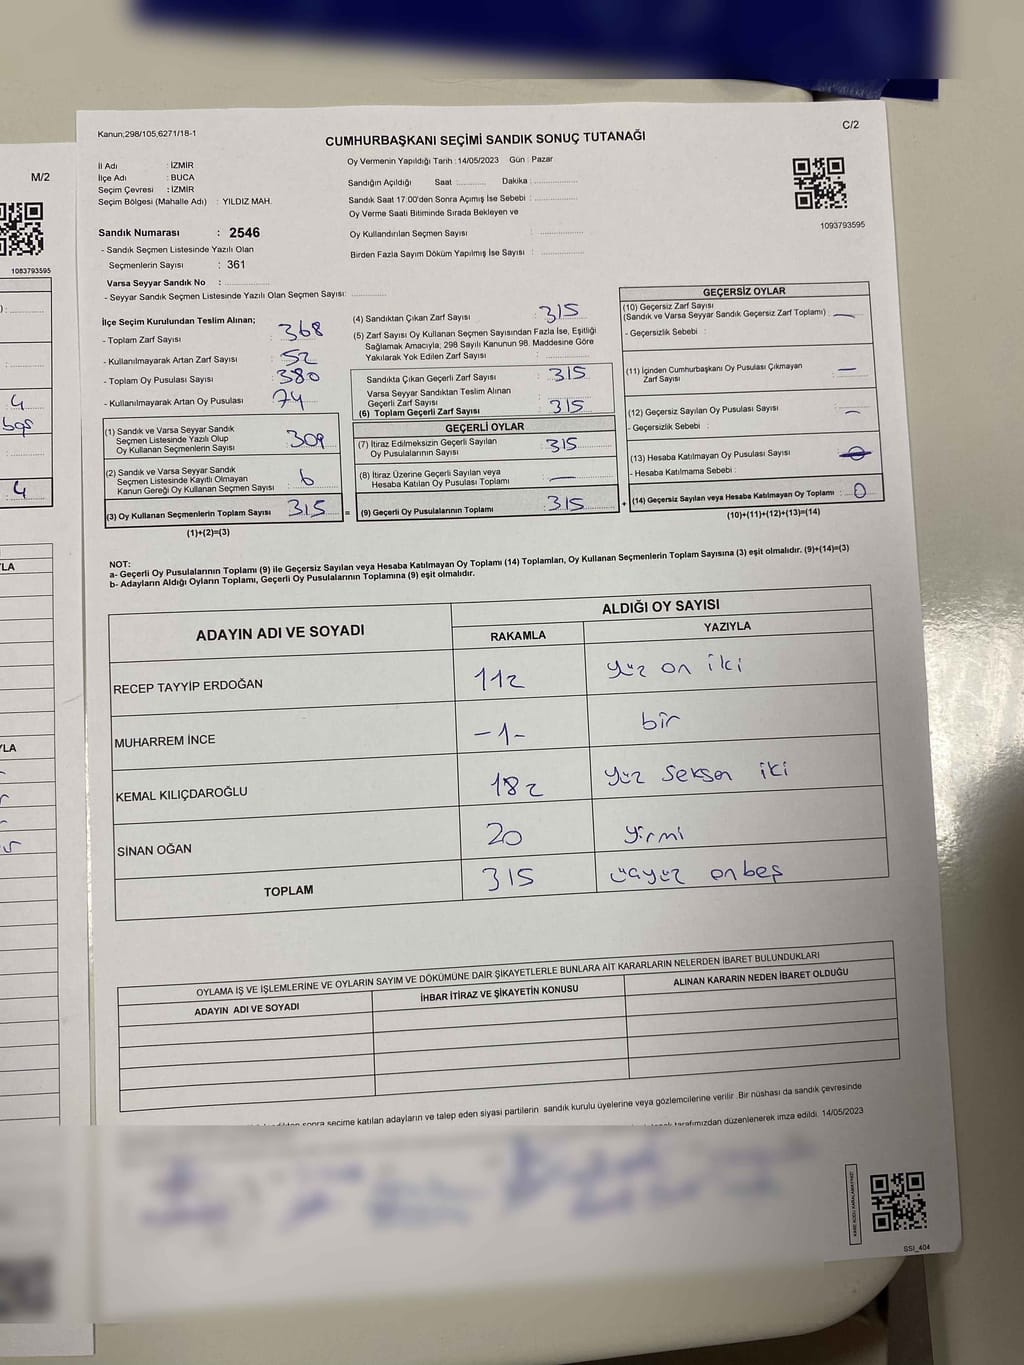 Kanun;298/105,6271/18-1
C/2
CUMHURBAŞKANI SEÇİMİ SANDIK SONUÇ TUTANAĞI
M/2
İl Adı : İZMİR
İlçe Adı : BUCA
Seçim Çevresi : İZMİR
Seçim Bölgesi (Mahalle Adı) : YILDIZ MAH.
Sandık Numarası : 2546
- Sandık Seçmen Listesinde Yazılı Olan
Seçmenlerin Sayısı : 361
Varsa Seyyar Sandık No :
- Seyyar Sandık Seçmen Listesinde Yazılı Olan Seçmen Sayısı:
Oy Vermenin Yapıldığı Tarih : 14/05/2023 Gün : Pazar
Sandığın Açıldığı Saat : Dakika :
Sandık Saat 17:00'den Sonra Açımış İse Sebebi :
Oy Verme Saati Bitiminde Sırada Bekleyen ve
Oy Kullandırılan Seçmen Sayısı :
Birden Fazla Sayım Döküm Yapılmış İse Sayısı :
1093793595
1083793595
İlçe Seçim Kurulundan Teslim Alınan;
- Toplam Zarf Sayısı : 368
- Kullanılmayarak Artan Zarf Sayısı : 52
- Toplam Oy Pusulası Sayısı : 380
- Kullanılmayarak Artan Oy Pusulası : 74
(1) Sandık ve Varsa Seyyar Sandık
Seçmen Listesinde Yazılı Olup
Oy Kullanan Seçmenlerin Sayısı : 309
(2) Sandık ve Varsa Seyyar Sandık
Seçmen Listesinde Kayıtlı Olmayan
Kanun Gereği Oy Kullanan Seçmen Sayısı : 6
(3) Oy Kullanan Seçmenlerin Toplam Sayısı 315
(1)+(2)=(3)
(4) Sandıktan Çıkan Zarf Sayısı : 315
(5) Zarf Sayısı Oy Kullanan Seçmen Sayısından Fazla İse, Eşitliği
Sağlamak Amacıyla; 298 Sayılı Kanunun 98. Maddesine Göre
Yakılarak Yok Edilen Zarf Sayısı :
Sandıkta Çıkan Geçerli Zarf Sayısı : 315
Varsa Seyyar Sandıktan Teslim Alınan
Geçerli Zarf Sayısı :
(6) Toplam Geçerli Zarf Sayısı : 315
GEÇERLİ OYLAR
(7) İtiraz Edilmeksizin Geçerli Sayılan
Oy Pusulasının Sayısı : 315
(8) İtiraz Üzerine Geçerli Sayılan veya
Hesaba Katılan Oy Pusulası Toplamı : —
= (9) Geçerli Oy Pusulalarının Toplamı : 315
GEÇERSİZ OYLAR
(10) Geçersiz Zarf Sayısı
(Sandık ve Varsa Seyyar Sandık Geçersiz Zarf Toplamı) : —
- Geçersizlik Sebebi :
(11) İçinden Cumhurbaşkanı Oy Pusulası Çıkmayan
Zarf Sayısı : —
(12) Geçersiz Sayılan Oy Pusulası Sayısı : —
- Geçersizlik Sebebi :
(13) Hesaba Katılmayan Oy Pusulası Sayısı :
- Hesaba Katılmama Sebebi :
+ (14) Geçersiz Sayılan veya Hesaba Katılmayan Oy Toplamı : 0
(10)+(11)+(12)+(13)=(14)
NOT:
a- Geçerli Oy Pusulalarının Toplamı (9) ile Geçersiz Sayılan veya Hesaba Katılmayan Oy Toplamı (14) Toplamları, Oy Kullanan Seçmenlerin Toplam Sayısına (3) eşit olmalıdır. (9)+(14)=(3)
b- Adayların Aldığı Oyların Toplamı, Geçerli Oy Pusulalarının Toplamına (9) eşit olmalıdır.
ADAYIN ADI VE SOYADI
ALDIĞI OY SAYISI
RAKAMLA YAZIYLA
RECEP TAYYİP ERDOĞAN 112 yüz on iki
MUHARREM İNCE -1- bir
KEMAL KILIÇDAROĞLU 182 yüz seksen iki
SİNAN OĞAN 20 yirmi
TOPLAM 315 üçyüz onbeş
OYLAMA İŞ VE İŞLEMLERİNE VE OYLARIN SAYIM VE DÖKÜMÜNE DAİR ŞİKAYETLERLE BUNLARA AİT KARARLARIN NELERDEN İBARET BULUNDUKLARI
ADAYIN ADI VE SOYADI İHBAR İTİRAZ VE ŞİKAYETİN KONUSU ALINAN KARARIN NEDEN İBARET OLDUĞU
sonra seçime katılan adayların ve talep eden siyasi partilerin sandık kurulu üyelerine veya gözlemcilerine verilir. Bir nüshası da sandık çevresinde
tarafımızdan düzenlenerek imza edildi. 14/05/2023
SSİ_404